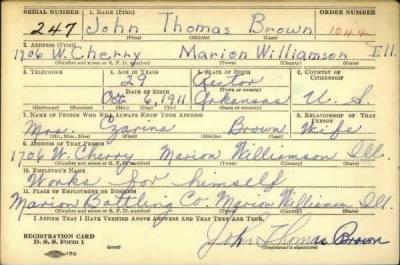 SERIAL NUMBER 1. NAME (Print) ORDER NUMBER
247 John Thomas Brown 1044
(First) (Middle) (Last)
2. ADDRESS (Print)
1706 W. Cherry Marion Williamson Ill.
(Number and street or R. F. D. number) (Town) (County) (State)
3. TELEPHONE 4. AGE IN YEARS 5. PLACE OF BIRTH 6. COUNTRY OF CITIZENSHIP
29 Rector
DATE OF BIRTH (Town or county)
Oct 6, 1911 Arkansas U. S.
(Exchange) (Number) (Mo.) (Day) (Yr.) (State or country)
7. NAME OF PERSON WHO WILL ALWAYS KNOW YOUR ADDRESS 8. RELATIONSHIP OF THAT PERSON
Mrs. Czarina Brown Wife
(Mr., Mrs., Miss) (First) (Middle) (Last)
9. ADDRESS OF THAT PERSON
1706 W. Cherry, Marion, Williamson Ill.
(Number and street or R. F. D. number) (Town) (County) (State)
10. EMPLOYER'S NAME
Works for himself
11. PLACE OF EMPLOYMENT OR BUSINESS
Marion Bottling Co. Marion Williamson Ill.
(Number and street or R. F. D. number) (Town) (County) (State)
I AFFIRM THAT I HAVE VERIFIED ABOVE ANSWERS AND THAT THEY ARE TRUE.
REGISTRATION CARD
D. S. S. Form 1 John Thomas Brown
(Registrant's signature)